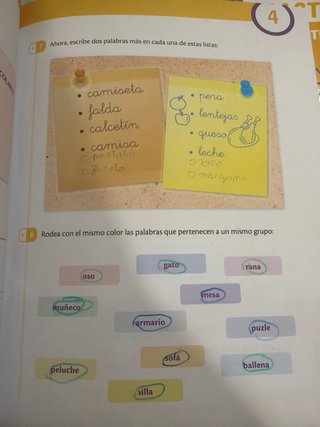 4
Ahora, escribe dos palabras más en cada una de estas listas:
• camiseta
• falda
• calcetín
• camisa
• pera
• lentejas
• queso
• leche
o manzana
Rodea con el mismo color las palabras que pertenecen a un mismo grupo:
oso
gato
rana
muñeco
mesa
armario
puzle
peluche
sofá
ballena
silla